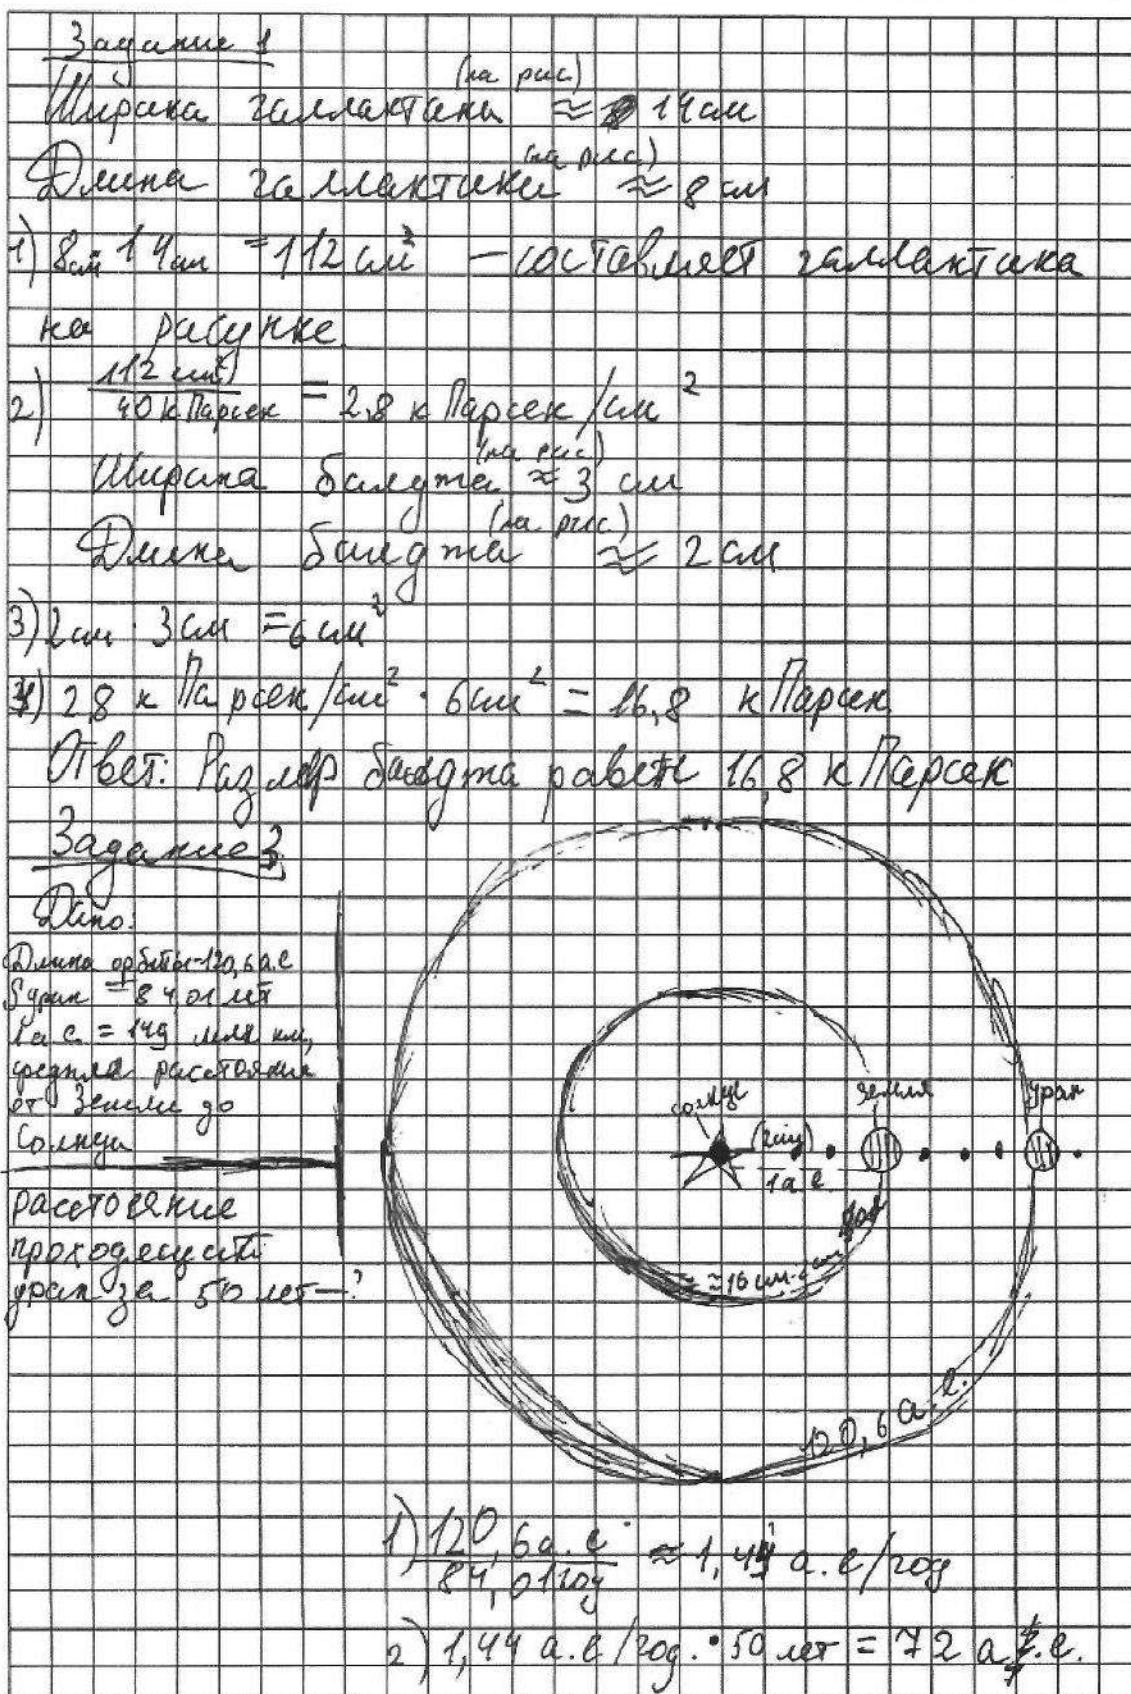 Задание 1
(на рис)
Ширина галлактики ≈ 14 см
(на рис)
Длина галлактики ≈ 8 см
1) 8см 14см = 112 см² – составляет галлактика
на рисунке.
2) 112 см² / 40 кПарсек = 2,8 кПарсек/см²
(на рис)
Ширина балджа ≈ 3 см
(на рис)
Длина балджа ≈ 2 см
3) 2 см · 3 см = 6 см²
4) 2,8 кПарсек/см² · 6 см² = 16,8 кПарсек
Ответ: Размер балджа равен 16,8 кПарсек
Задание 3
Дано:
Длина орбиты-120,6 а.е
Sуран = 8401 лет
1 а.е. = 149 млн км,
средняя расстояния
от Земли до
Солнца
расстояние
уран за 50 лет – ?
солнце
Земля
уран
1 а е
≈16 см
120,6 а.е.
1) 120,6 а.е / 84,01 год ≈ 1,44 а.е/год
2) 1,44 а.е/год. · 50 лет = 72 а.е.